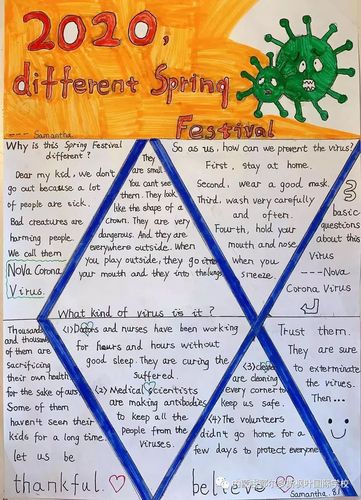 2020,
different Spring
Festival
---- Samantha.
Why is this Spring Festival
different?
Dear my ksd, we don't
go out because a lot
of people are sick.
Bad creatures are
harming people.
We call them
Nova Corona
Virus.
They
are small.
You cant see
them. They look
like the shape of a
Crown. They are very
dangerous. And they are
everywhere outside. When
you play outside, they go into
your mouth and they into the lungs
What kind of virus is it?
So as us, how can we prevent the virus?
First, stay at home.
Second, wear a good mask.
Third, wash very carefully
and often.
Fourth, hold your
mouth and nose
when you
sneeze.
3
basic
questions
about this
virus
---Nova
Corona Virus
Thousands
and thousands
of them are
sacrificing
their own health
for the sake of ours.
Some of them
haven't seen their
kids for a long time.
let us be
thankful.
(1) Doctors and nurses have been working
for hours and hours without
good sleep. They are curing the
suffered.
(2) Medical scientists
are making antibodies
to keep all the
people from the
viruses.
(3)
are cleaning
every corner to
keep us safe.
(4) The volunteers
didn't go home for a
few days to protect everyone
believe
Trust them.
They are sure
to exterminate
the viruses.
Then...
Samantha. 8.1